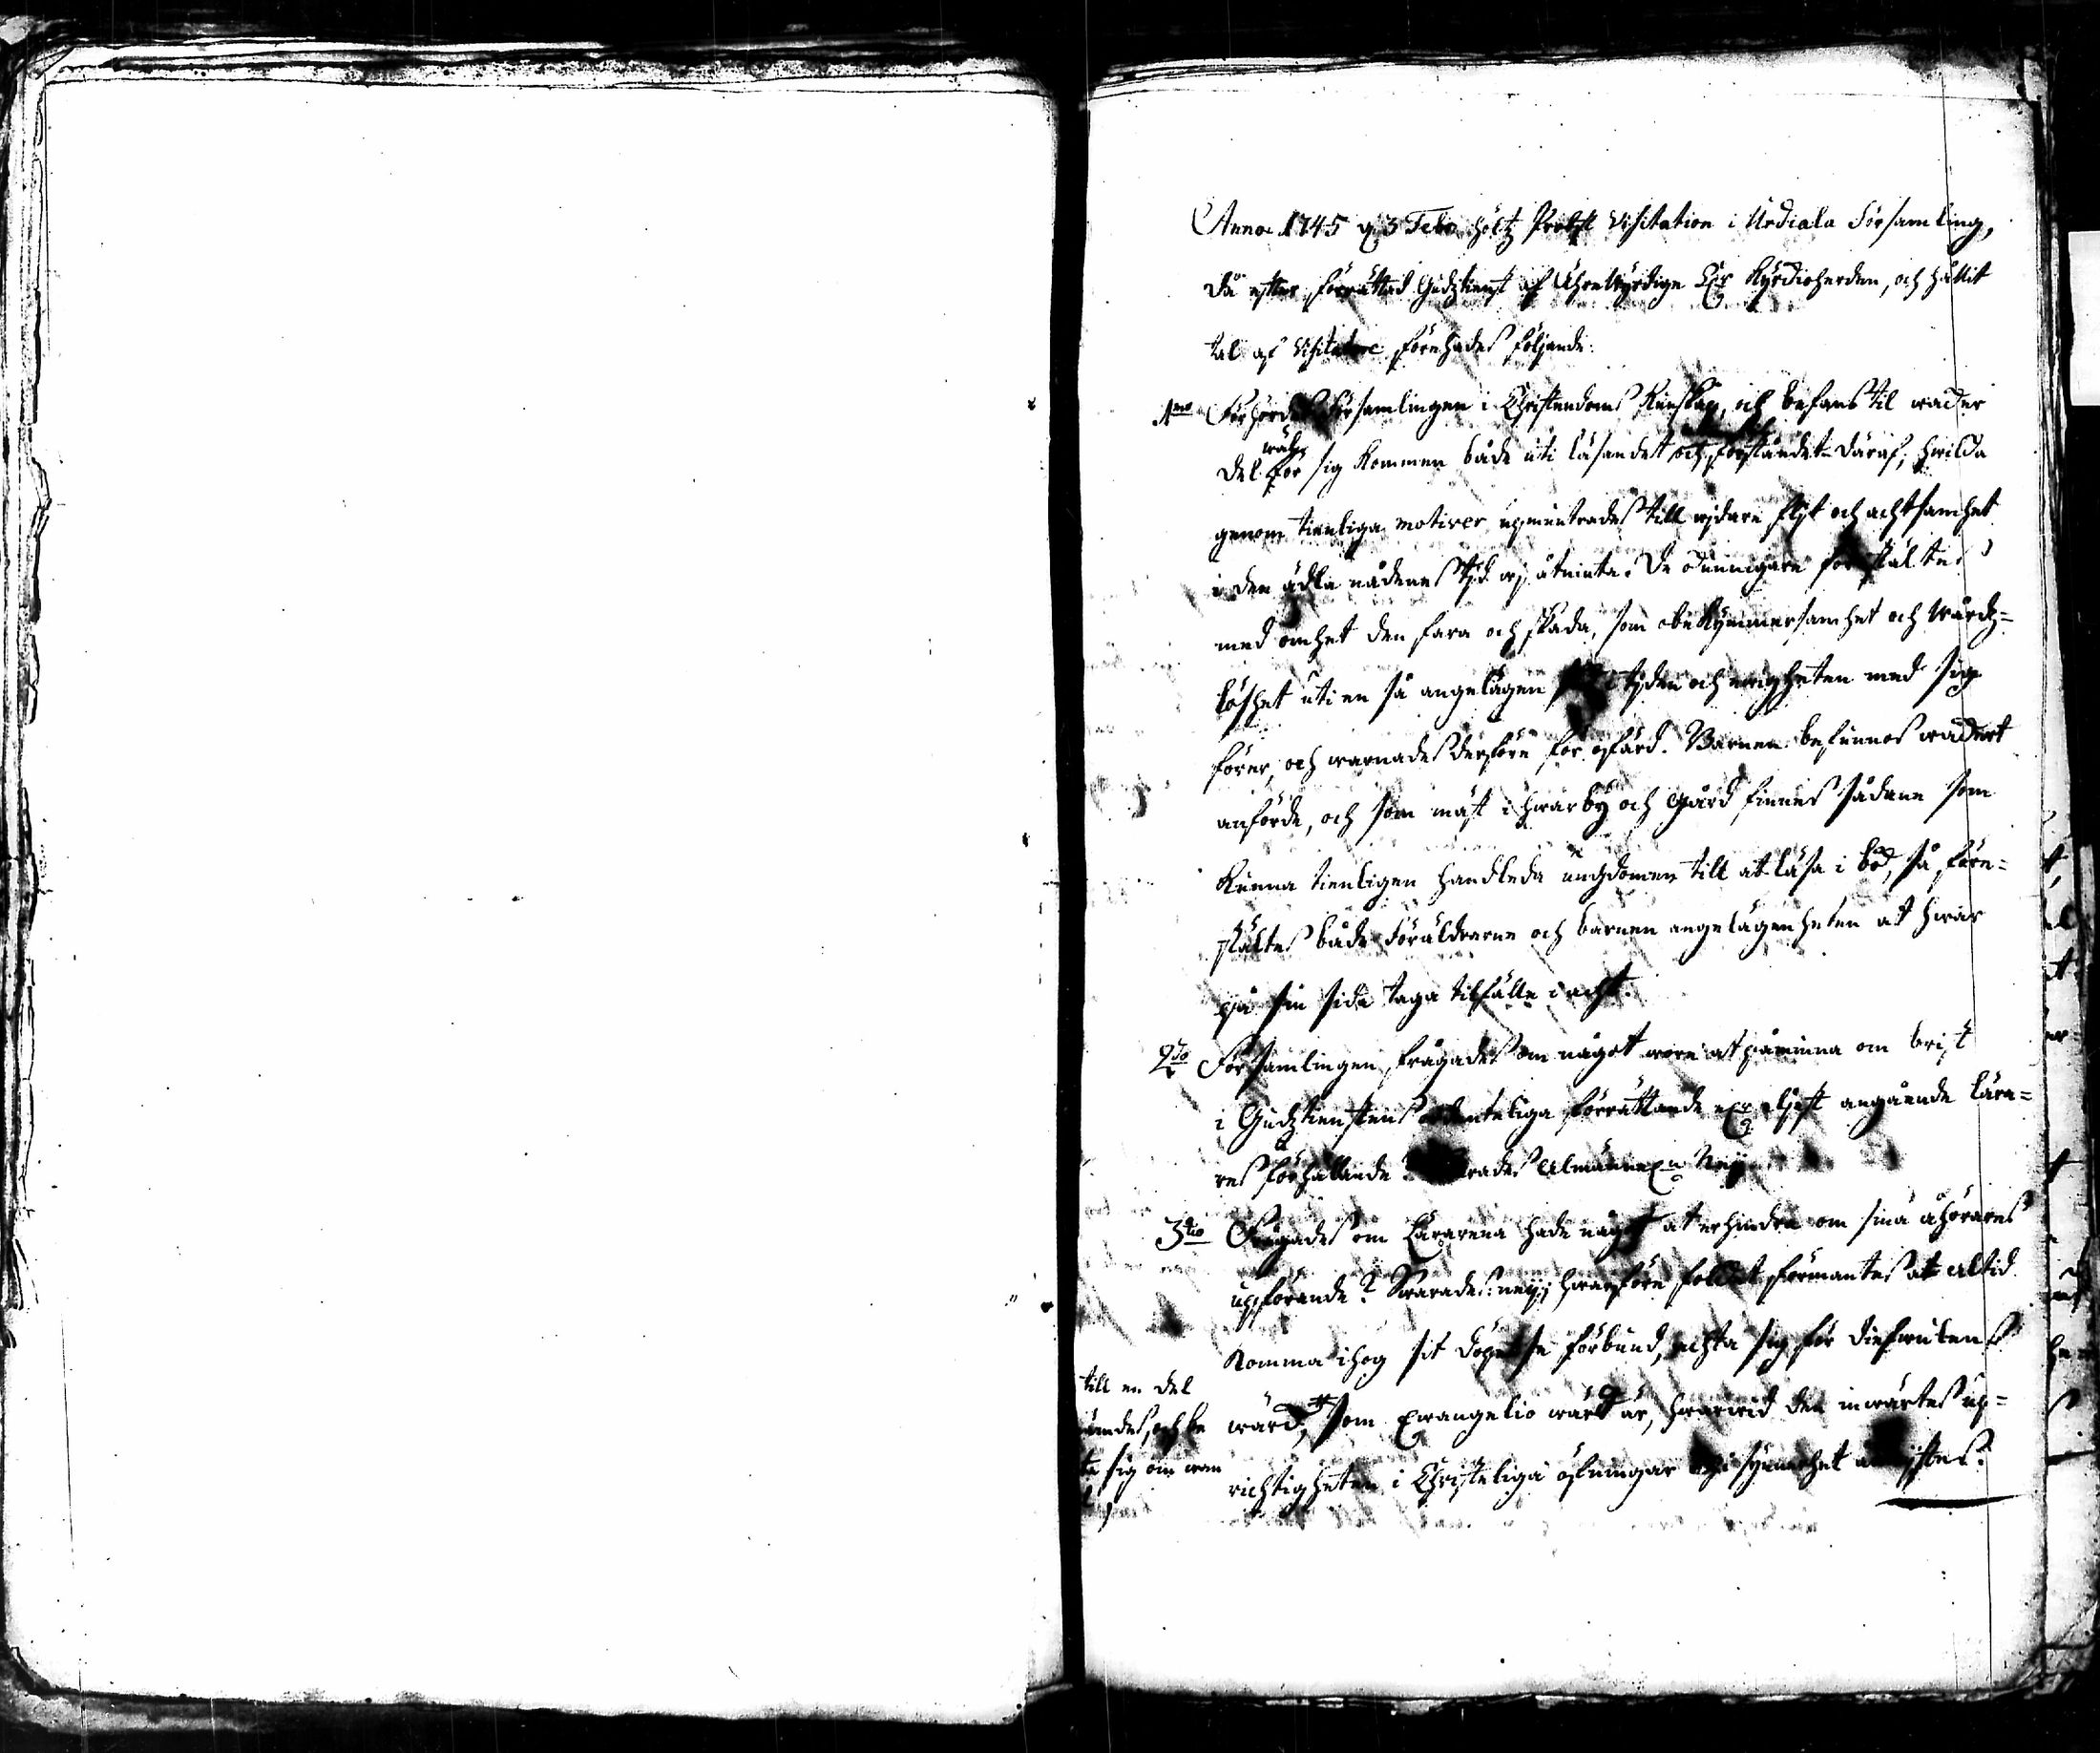 Anno 1745 d. 3 Febr. höltz Probst Visitation i Urdiala Församling,
då efter förrättad Gudztienst af Ehrewyrdige Hr Kyrckioherden, och hållit
tal af Visitatore förehades följande:
1mo Förhördes Församlingen i Christendoms Kunskap, och befans til wacker
del wäl för sig kommen både uti läsandet och förståndet däraf, hwilcka
genom tienliga motiver upmuntrades till wjdare flijt och achtsamhet
i den ädla nådenes tijd at njuta. De okunnigare förestältes
med ömhet den fara och skada, som obekymmersamhet och wårdz-
löshet uti en så angelägen i tijden och ewigheten med sig
förer, och warnades derföre för ofärd. Barnen befunnos wackert
anförde, och som mäst i hwar by och gård finnes sådane som
kunna tienligen handleda ungdomen till at läsa i bok, så före-
stältes både Föräldrarne och barnen angelägenheten at hwar
på sin sida taga tilfälle i acht.
2do Församlingen frågades om något wore at påminna om brist
i Gudztienstens ordenteliga förrättande eller eljest angående Lära-
res förhållande? Swarades Almänneligen Neij
3tio Frågades om Lärarena hade något at erhindra om sina åhörares
upförande? Swarades: neij; hwarföre folcket förmantes at altid
komma ihog sit döpelse förbund, achta sig för diefwulens
till en del
wärck, # som Ewangelio wärdt är, hwarwid den inwärtes up-
ändes, och be
richtigheten i Christeliga öfningar i synnerhet
ta sig om wan